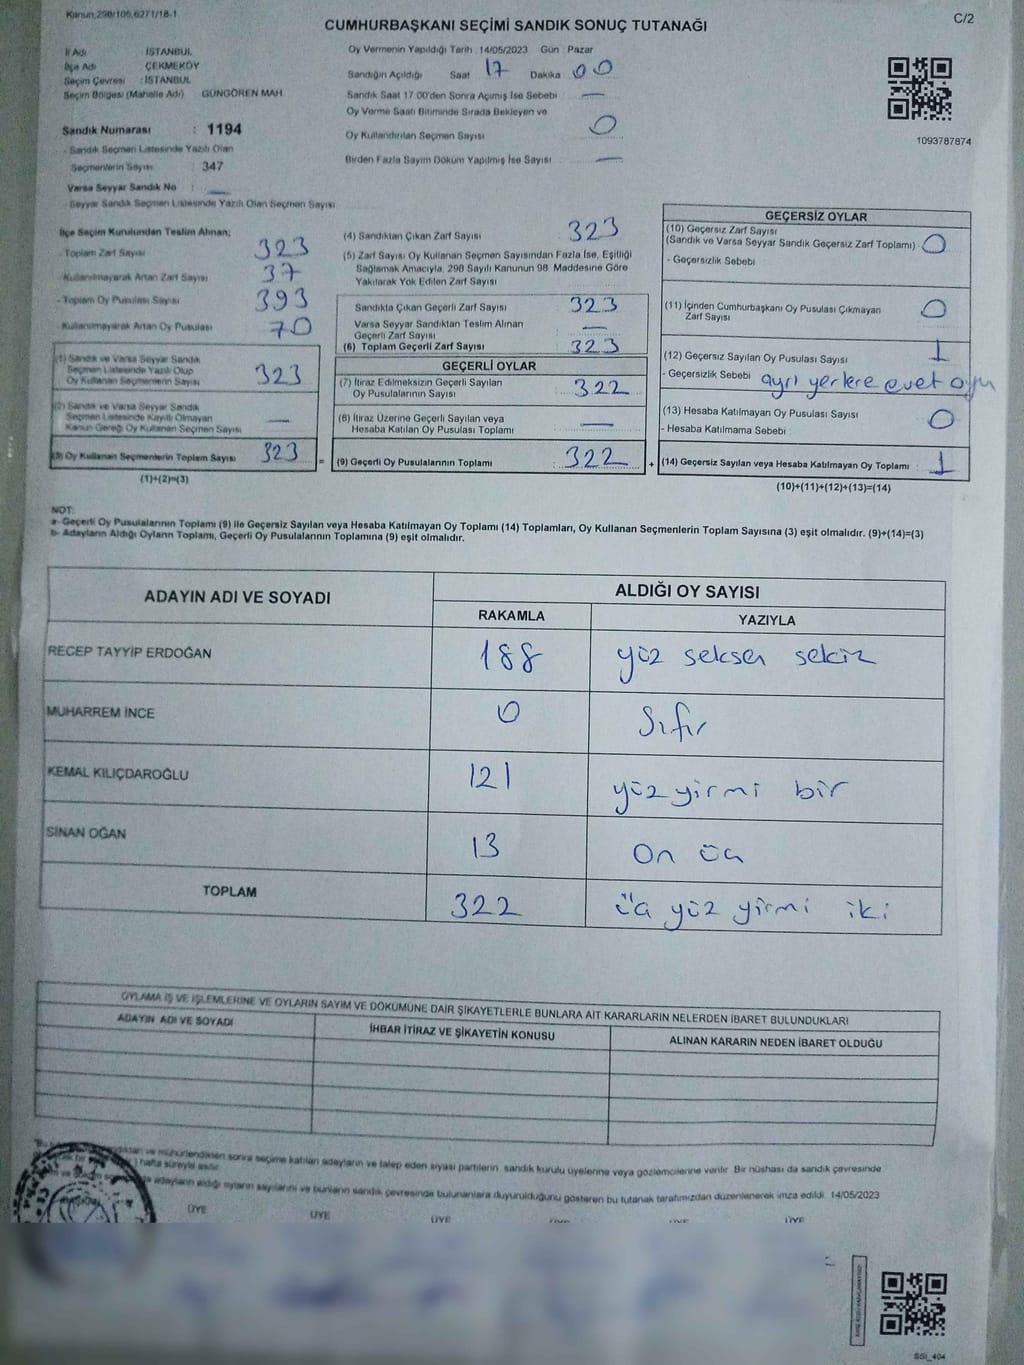 Kanun:298/105,6271/18-1
CUMHURBAŞKANI SEÇİMİ SANDIK SONUÇ TUTANAĞI
C/2
İl Adı : İSTANBUL
İlçe Adı : ÇEKMEKÖY
Seçim Çevresi : İSTANBUL
Seçim Bölgesi (Mahalle Adı) : GÜNGÖREN MAH.
Sandık Numarası : 1194
- Sandık Seçmen Listesinde Yazılı Olan
Seçmenlerin Sayısı : 347
Varsa Seyyar Sandık No : —
- Seyyar Sandık Seçmen Listesinde Yazılı Olan Seçmen Sayısı
Oy Vermenin Yapıldığı Tarih : 14/05/2023 Gün : Pazar
Sandığın Açıldığı Saat 17 Dakika 00
Sandık Saat 17.00'den Sonra Açılmış İse Sebebi : —
Oy Verme Saati Bitiminde Sırada Bekleyen ve
Oy Kullandırılan Seçmen Sayısı : 0
Birden Fazla Sayım Döküm Yapılmış İse Sayısı : —
1093787874
İlçe Seçim Kurulundan Teslim Alınan;
- Toplam Zarf Sayısı : 323
- Kullanılmayarak Artan Zarf Sayısı : 37
- Toplam Oy Pusulası Sayısı : 393
- Kullanılmayarak Artan Oy Pusulası : 70
(1) Sandık ve Varsa Seyyar Sandık
Seçmen Listesinde Yazılı Olup
Oy Kullanan Seçmenlerin Sayısı : 323
(2) Sandık ve Varsa Seyyar Sandık
Seçmen Listesinde Kayıtlı Olmayan
Kanun Gereği Oy Kullanan Seçmen Sayısı : —
(3) Oy Kullanan Seçmenlerin Toplam Sayısı : 323
(1)+(2)=(3)
(4) Sandıktan Çıkan Zarf Sayısı : 323
(5) Zarf Sayısı Oy Kullanan Seçmen Sayısından Fazla İse, Eşitliği
Sağlamak Amacıyla, 298 Sayılı Kanunun 98. Maddesine Göre
Yakılarak Yok Edilen Zarf Sayısı :
Sandıkta Çıkan Geçerli Zarf Sayısı : 323
Varsa Seyyar Sandıktan Teslim Alınan
Geçerli Zarf Sayısı : —
(6) Toplam Geçerli Zarf Sayısı : 323
GEÇERLİ OYLAR
(7) İtiraz Edilmeksizin Geçerli Sayılan
Oy Pusulalarının Sayısı : 322
(8) İtiraz Üzerine Geçerli Sayılan veya
Hesaba Katılan Oy Pusulası Toplamı : —
= (9) Geçerli Oy Pusulalarının Toplamı : 322
GEÇERSİZ OYLAR
(10) Geçersiz Zarf Sayısı
(Sandık ve Varsa Seyyar Sandık Geçersiz Zarf Toplamı) : 0
- Geçersizlik Sebebi :
(11) İçinden Cumhurbaşkanı Oy Pusulası Çıkmayan
Zarf Sayısı : 0
(12) Geçersiz Sayılan Oy Pusulası Sayısı : 1
- Geçersizlik Sebebi : ayrı yerlere evet oyu
(13) Hesaba Katılmayan Oy Pusulası Sayısı : 0
- Hesaba Katılmama Sebebi :
+ (14) Geçersiz Sayılan veya Hesaba Katılmayan Oy Toplamı : 1
(10)+(11)+(12)+(13)=(14)
NOT:
a- Geçerli Oy Pusulalarının Toplamı (9) ile Geçersiz Sayılan veya Hesaba Katılmayan Oy Toplamı (14) Toplamları, Oy Kullanan Seçmenlerin Toplam Sayısına (3) eşit olmalıdır. (9)+(14)=(3)
b- Adayların Aldığı Oyların Toplamı, Geçerli Oy Pusulalarının Toplamına (9) eşit olmalıdır.
ADAYIN ADI VE SOYADI ALDIĞI OY SAYISI
RAKAMLA YAZIYLA
RECEP TAYYİP ERDOĞAN 188 yüz seksen sekiz
MUHARREM İNCE 0 Sıfır
KEMAL KILIÇDAROĞLU 121 yüz yirmi bir
SİNAN OĞAN 13 On üç
TOPLAM 322 üç yüz yirmi iki
OYLAMA İŞ VE İŞLEMLERİNE VE OYLARIN SAYIM VE DÖKÜMÜNE DAİR ŞİKAYETLERLE BUNLARA AİT KARARLARIN NELERDEN İBARET BULUNDUKLARI
ADAYIN ADI VE SOYADI İHBAR İTİRAZ VE ŞİKAYETİN KONUSU ALINAN KARARIN NEDEN İBARET OLDUĞU
ve mühürlendikten sonra seçime katılan adayların ve talep eden siyasi partilerin sandık kurulu üyelerine veya gözlemcilerine verilir. Bir nüshası da sandık çevresinde
hafta süreyle asılır.
adayların aldığı oyların sayılarını ve bunların sandık çevresinde bulunanlara duyurulduğunu gösteren bu tutanak tarafımızdan düzenlenerek imza edildi. 14/05/2023
ÜYE ÜYE ÜYE ÜYE ÜYE ÜYE